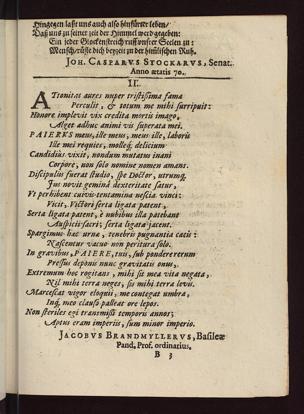 Hingegen laßt uns auch also hinfürter leben/
Daß uns zu seiner zeit der Himmel werd gegeben:
Ein jeder Glockenstreich rufft unser Seelen zu:
Mensch/rüste dich beyzeit zu der himlischen Ruh.
JOH. CASPARVS STOCKARVS, Senat.
Anno ætatis 70.
II.
ATtonitas aures nuper tristissima fama
Perculit, & totum me mihi surripuit:
Honore implevit vix credita mortis imago,
Atque adhuc animi vis superata mei.
PAIERUS meus, ille meus; meus ille, laboris
Ille mei requies, mollequè delicium
Candidius vixit, nondum mutatus inani
Corpore, non solo nomine nomen amans.
Discipulus fuerat studio, spe Doctor, utrumq;
Jus novit geminâ dexteritate satur,
Ut perhibent cuevis tentamina nescia vinci:
Vicit, Victori serta ligata patent,
Serta ligata patent, è nubibus illa patebant
Auspiciis sacri; serta ligata jacent.
Spargimus hæc urna, tenebris pugnantia cæcis:
Nascentur vacuo non peritura solo.
In gravibus, PAIERE, tuis, sub pondere rerum
Pressus deponis nunc gravitatis onus,
Extremum hoc rogitans, mihi sis mea vita negata,
Nil mihi terra neges, sis mihi terra levis.
Marcescat vigor eloquii, me contegat umbra,
Inq; meo clauso palleat ore lepos.
Non steriles ego transmissi temporis annos;
Aptus eram imperiis, sum minor imperio.
JACOBUS BRANDMYLLERUS, Basileæ
Pand. Prof. ordinarius.
B 3